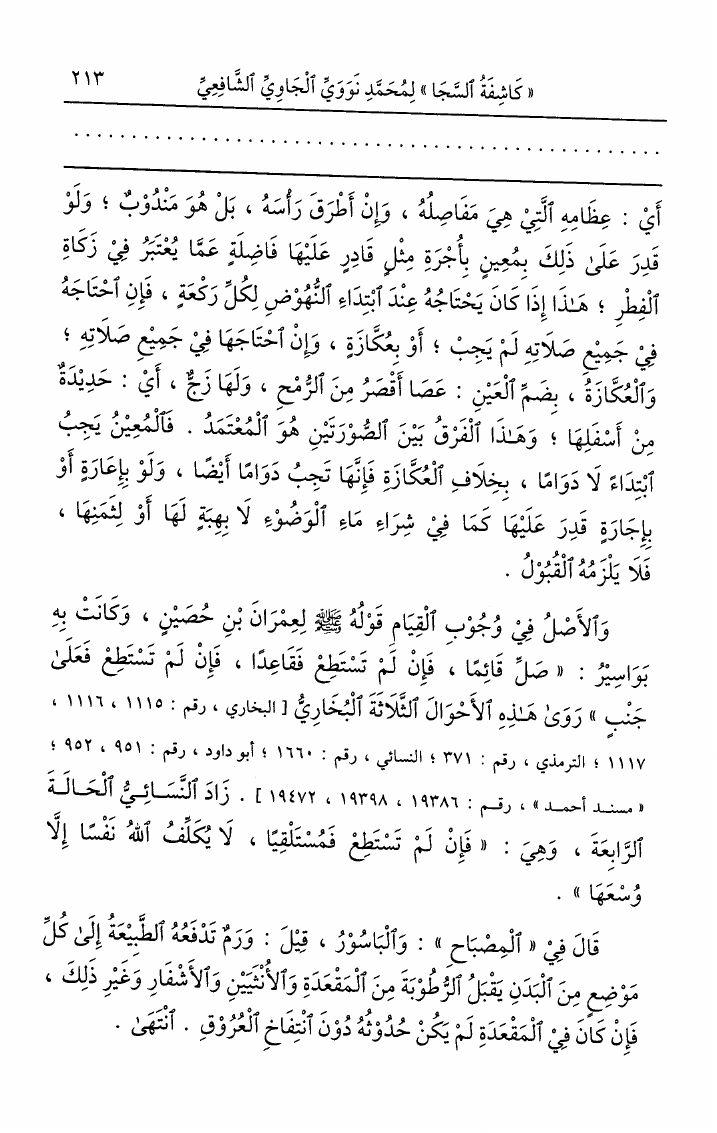 ٢١٣
« كَاشِفَةُ ٱلسَّجَا » لِمُحَمَّدِ نَوَوِيِّ ٱلْجَاوِيِّ ٱلشَّافِعِيِّ
أَيْ : عِظَامِهِ ٱلَّتِيْ هِيَ مَفَاصِلُهُ ، وَإِنْ أَطْرَقَ رَأْسَهُ ، بَلْ هُوَ مَنْدُوْبٌ ؛ وَلَوْ
قَدِرَ عَلَىٰ ذَلِكَ بِمُعِينٍ بِأُجْرَةِ مِثْلٍ قَادِرٍ عَلَيْهَا فَاضِلَةٍ عَمَّا يُعْتَبَرُ فِيْ زَكَاةِ
ٱلْفِطْرِ ؛ هَـٰذَا إِذَا كَانَ يَحْتَاجُهُ عِنْدَ ٱبْتِدَاءِ ٱلنُّهُوْضِ لِكُلِّ رَكْعَةٍ ، فَإِنِ ٱحْتَاجَهُ
فِيْ جَمِيْعِ صَلَاتِهِ لَمْ يَجِبْ ؛ أَوْ بِعُكَّازَةٍ ، وَإِنْ ٱحْتَاجَهَا فِيْ جَمِيْعِ صَلَاتِهِ ؛
وَٱلْعُكَّازَةُ ، بِضَمِّ ٱلْعَيْنِ : عَصَا أَقْصَرُ مِنَ ٱلرُّمْحِ ، وَلَهَا زَجٌّ ، أَيْ : حَدِيْدَةٌ
مِنْ أَسْفَلِهَا ؛ وَهَـٰذَا ٱلْفَرْقُ بَيْنَ ٱلصُّوْرَتَيْنِ هُوَ ٱلْمُعْتَمَدُ . فَٱلْمُعِيْنُ يَجِبُ
ٱبْتِدَاءً لَا دَوَامًا ، بِخِلَافِ ٱلْعُكَّازَةِ فَإِنَّهَا تَجِبُ دَوَامًا أَيْضًا ، وَلَوْ بِإِعَارَةٍ أَوْ
بِإِجَارَةٍ قَدِرَ عَلَيْهَا كَمَا فِيْ شِرَاءِ مَاءِ ٱلْوَضُوْءِ لَا بِهِبَةٍ لَهَا أَوْ لِثَمَنِهَا ،
فَلَا يَلْزَمُهُ ٱلْقُبُوْلُ .
وَٱلأَصْلُ فِيْ وُجُوْبِ ٱلْقِيَامِ قَوْلُهُ ﷺ لِعِمْرَانَ بْنِ حُصَيْنٍ ، وَكَانَتْ بِهِ
بَوَاسِيْرُ : « صَلِّ قَائِمًا ، فَإِنْ لَمْ تَسْتَطِعْ فَقَاعِدًا ، فَإِنْ لَمْ تَسْتَطِعْ فَعَلَىٰ
جَنْبٍ » رَوَىٰ هَـٰذِهِ ٱلأَحْوَالَ ٱلثَّلَاثَةَ ٱلْبُخَارِيُّ [ البخاري ، رقم : ١١١٥ ، ١١١٦ ،
١١١٧ ؛ الترمذي ، رقم : ٣٧١ ؛ النسائي ، رقم : ١٦٦٠ ؛ أبو داود ، رقم : ٩٥١ ، ٩٥٢ ؛
« مسند أحمد » ، رقم : ١٩٣٨٦ ، ١٩٣٩٨ ، ١٩٤٧٢ ] . زَادَ ٱلنَّسَائِيُّ ٱلْحَالَةَ
ٱلرَّابِعَةَ ، وَهِيَ : « فَإِنْ لَمْ تَسْتَطِعْ فَمُسْتَلْقِيًا ، لَا يُكَلِّفُ ٱللهُ نَفْسًا إِلَّا
وُسْعَهَا » .
قَالَ فِيْ « ٱلْمِصْبَاحِ » : وَٱلْبَاسُوْرُ ، قِيْلَ : وَرَمٌ تَدْفَعُهُ ٱلطَّبِيْعَةُ إِلَىٰ كُلِّ
مَوْضِعٍ مِنَ ٱلْبَدَنِ يَقْبَلُ ٱلرُّطُوْبَةَ مِنَ ٱلْمَقْعَدَةِ وَٱلأُنْثَيَيْنِ وَٱلأَشْفَارِ وَغَيْرِ ذَلِكَ ،
فَإِنْ كَانَ فِيْ ٱلْمَقْعَدَةِ لَمْ يَكُنْ حُدُوْثُهُ دُوْنَ ٱنْتِفَاخِ ٱلْعُرُوْقِ . ٱنْتَهَىٰ .